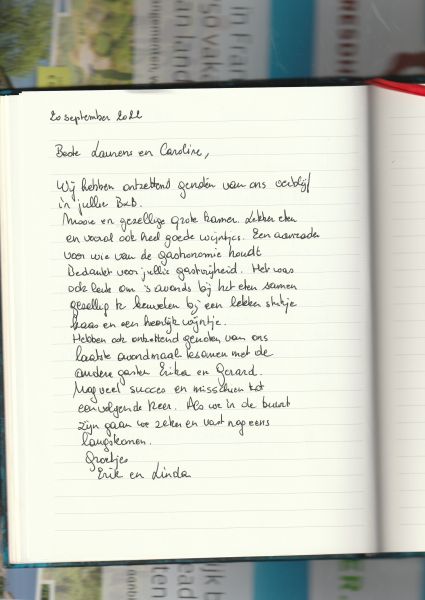 in Fran
so vak
an lan
RESOR
20 september 2022
Beste Laurens en Caroline,
Wij hebben ontzettend genoten van ons verblijf
in jullie B&B.
Mooie en gezellige grote kamer. Lekker eten
en vooral ook heel goede wijntjes. Een aanrader
voor wie van de gastronomie houdt
Bedankt voor jullie gastvrijheid. Het was
ook leuk om 's avonds bij het eten samen
gezellig te keuvelen bij een lekker stukje
kaas en een heerlijk wijntje.
Hebben ook ontzettend genoten van ons
laatste avondmaal tesamen met de
andere gasten Erika en Gerard.
Nog veel succes en misschien tot
een volgende keer. Als we in de buurt
zijn gaan we zeker en vast nog eens
langskomen.
Groetjes
Erik en Linda